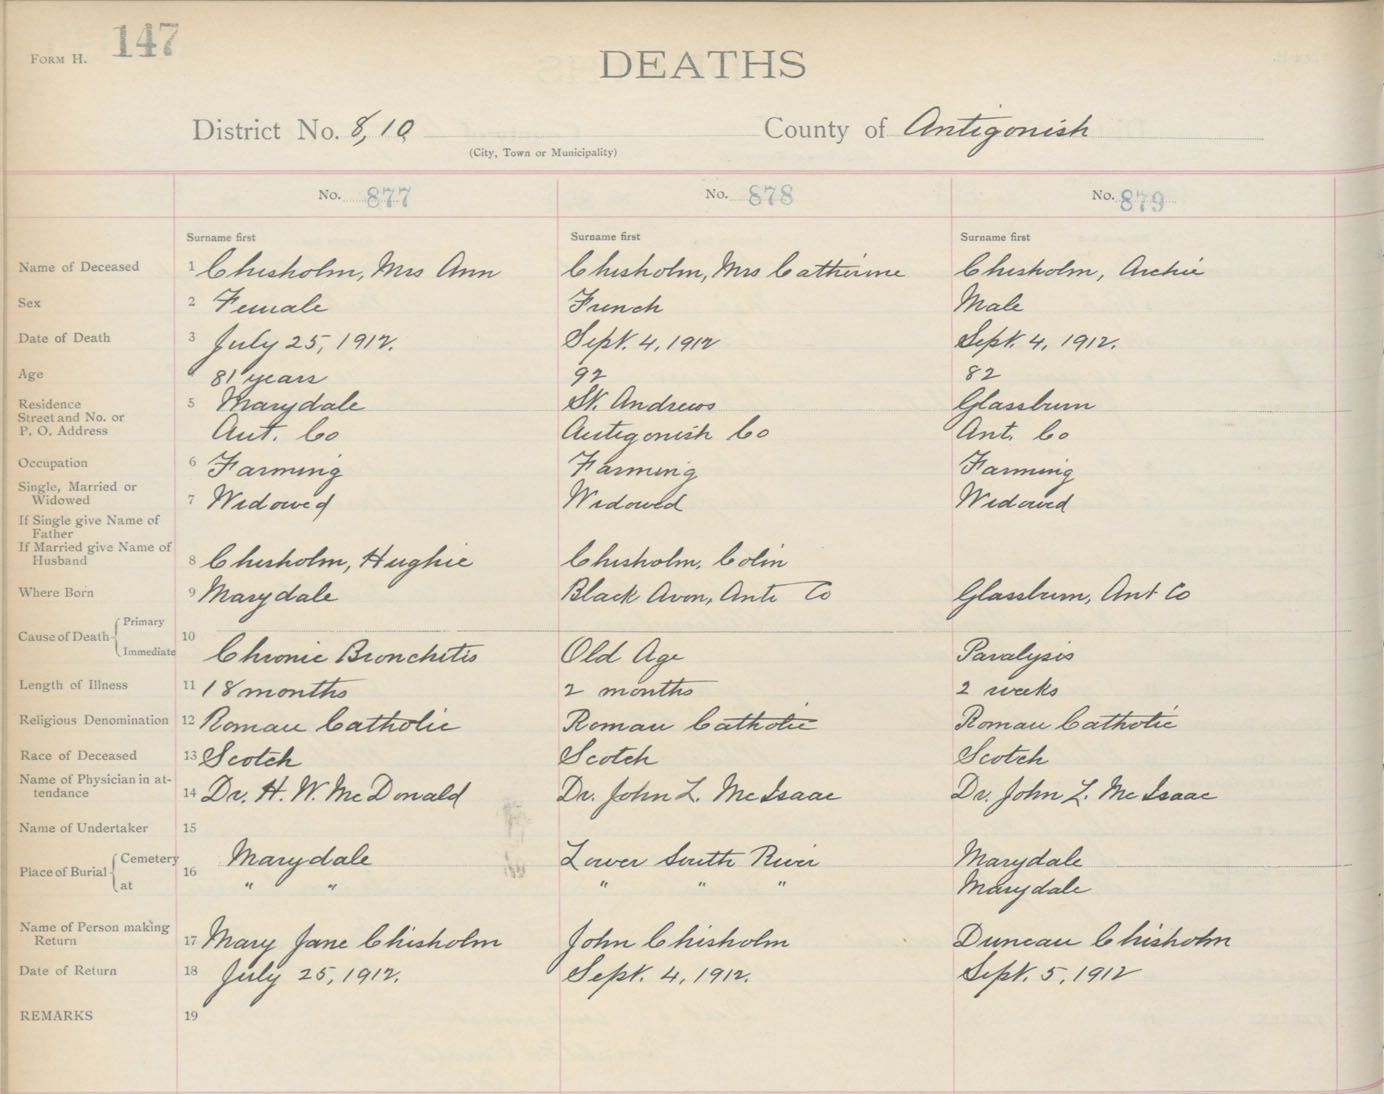 FORM H. 147
DEATHS
District No. 8, 10 County of Antigonish
(City, Town or Municipality)
No. 877 No. 878 No. 879
Surname first Surname first Surname first
Name of Deceased 1 Chisholm, Mrs Ann Chisholm, Mrs Catherine Chisholm, Archie
Sex 2 Female French Male
Date of Death 3 July 25, 1912. Sept. 4, 1912 Sept. 4, 1912.
Age 81 years 92 82
Residence 5 Marydale St. Andrews Glassburn
Street and No. or
P. O. Address Ant. Co Antigonish Co Ant. Co
Occupation 6 Farming Farming Farming
Single, Married or
Widowed 7 Widowed Widowed Widowed
If Single give Name of
Father
If Married give Name of
Husband 8 Chisholm, Hughie Chisholm, Colin
Where Born 9 Marydale Black Avon, Ant. Co Glassburn, Ant Co
Primary
Cause of Death 10
Immediate Chronic Bronchitis Old Age Paralysis
Length of Illness 11 18 months 2 months 2 weeks
Religious Denomination 12 Roman Catholic Roman Catholic Roman Catholic
Race of Deceased 13 Scotch Scotch Scotch
Name of Physician in at-
tendance 14 Dr. H. W. McDonald Dr. John L. McIsaac Dr. John L. McIsaac
Name of Undertaker 15
Cemetery Marydale Lower South River Marydale
Place of Burial 16
at " " " " " Marydale
Name of Person making
Return 17 Mary Jane Chisholm John Chisholm Duncan Chisholm
Date of Return 18 July 25, 1912. Sept. 4, 1912. Sept. 5, 1912
REMARKS 19